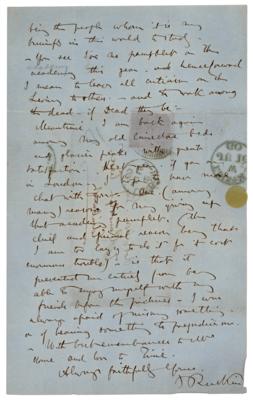 being the people whom it is my
business in this world to study -
- You see I've no pamphlet on the
academy this year - and henceforward
I mean to leave all criticism on the
living to others - and to work among
the dead - if Dead they be -
Meantime I am back again
among my old
and glacier peaks with great
satisfaction -
in London I hope to have
chat with you. One (among
many) reasons for my giving up
that academy pamphlet - (the
chief and final reason being that
I am too lazy to do it for it cost
enormous trouble) - is that it
prevented me entirely from being
able to enjoy myself with my
friends before the pictures - I was
always afraid of missing something -
or of hearing something to prejudice me.
- With best remembrances to Mrs
and love to
Always faithfully Yours
J Ruskin